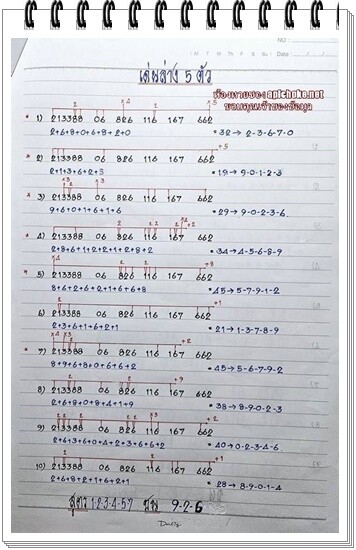 NO :
Date
เด่นล่าง 5 ตัว
artchoke.net
1) 213388 06 826 116 167 662
2+6+8+0+6+8+2+0 = 32 → 2-3-6-7-0
+5
2) 213388 06 826 116 167 662
2+1+3+6+2+5 = 19 → 9-0-1-2-3
3) 213388 06 826 116 167 662
9+6+0+1+6+1+6 = 29 → 9-0-2-3-6
+2
4) 213388 06 826 116 167 662
2+8+6+1+2+2+1+2+8+2 = 34 → 4-5-6-8-9
+8
5) 213388 06 826 116 167 662
8+6+2+6+2+1+6+6+8 = 45 → 5-7-9-1-2
+1
6) 213388 06 826 116 167 662
2+3+6+1+6+2+1 = 21 → 1-3-7-8-9
+2
7) 213388 06 826 116 167 662
8+9+6+8+0+6+6+2 = 45 → 5-6-7-9-2
+9
8) 213388 06 826 116 167 662
2+6+8+0+8+4+1+9 = 38 → 8-9-0-2-3
9) 213388 06 826 116 167 662
2+6+3+6+0+4+2+3+6+6+2 = 40 → 0-2-3-4-6
+1
10) 213388 06 826 116 167 662
2+6+8+2+1+6+2+1 = 28 → 8-9-0-1-4
1-2-3-4-5-7 9-2-6